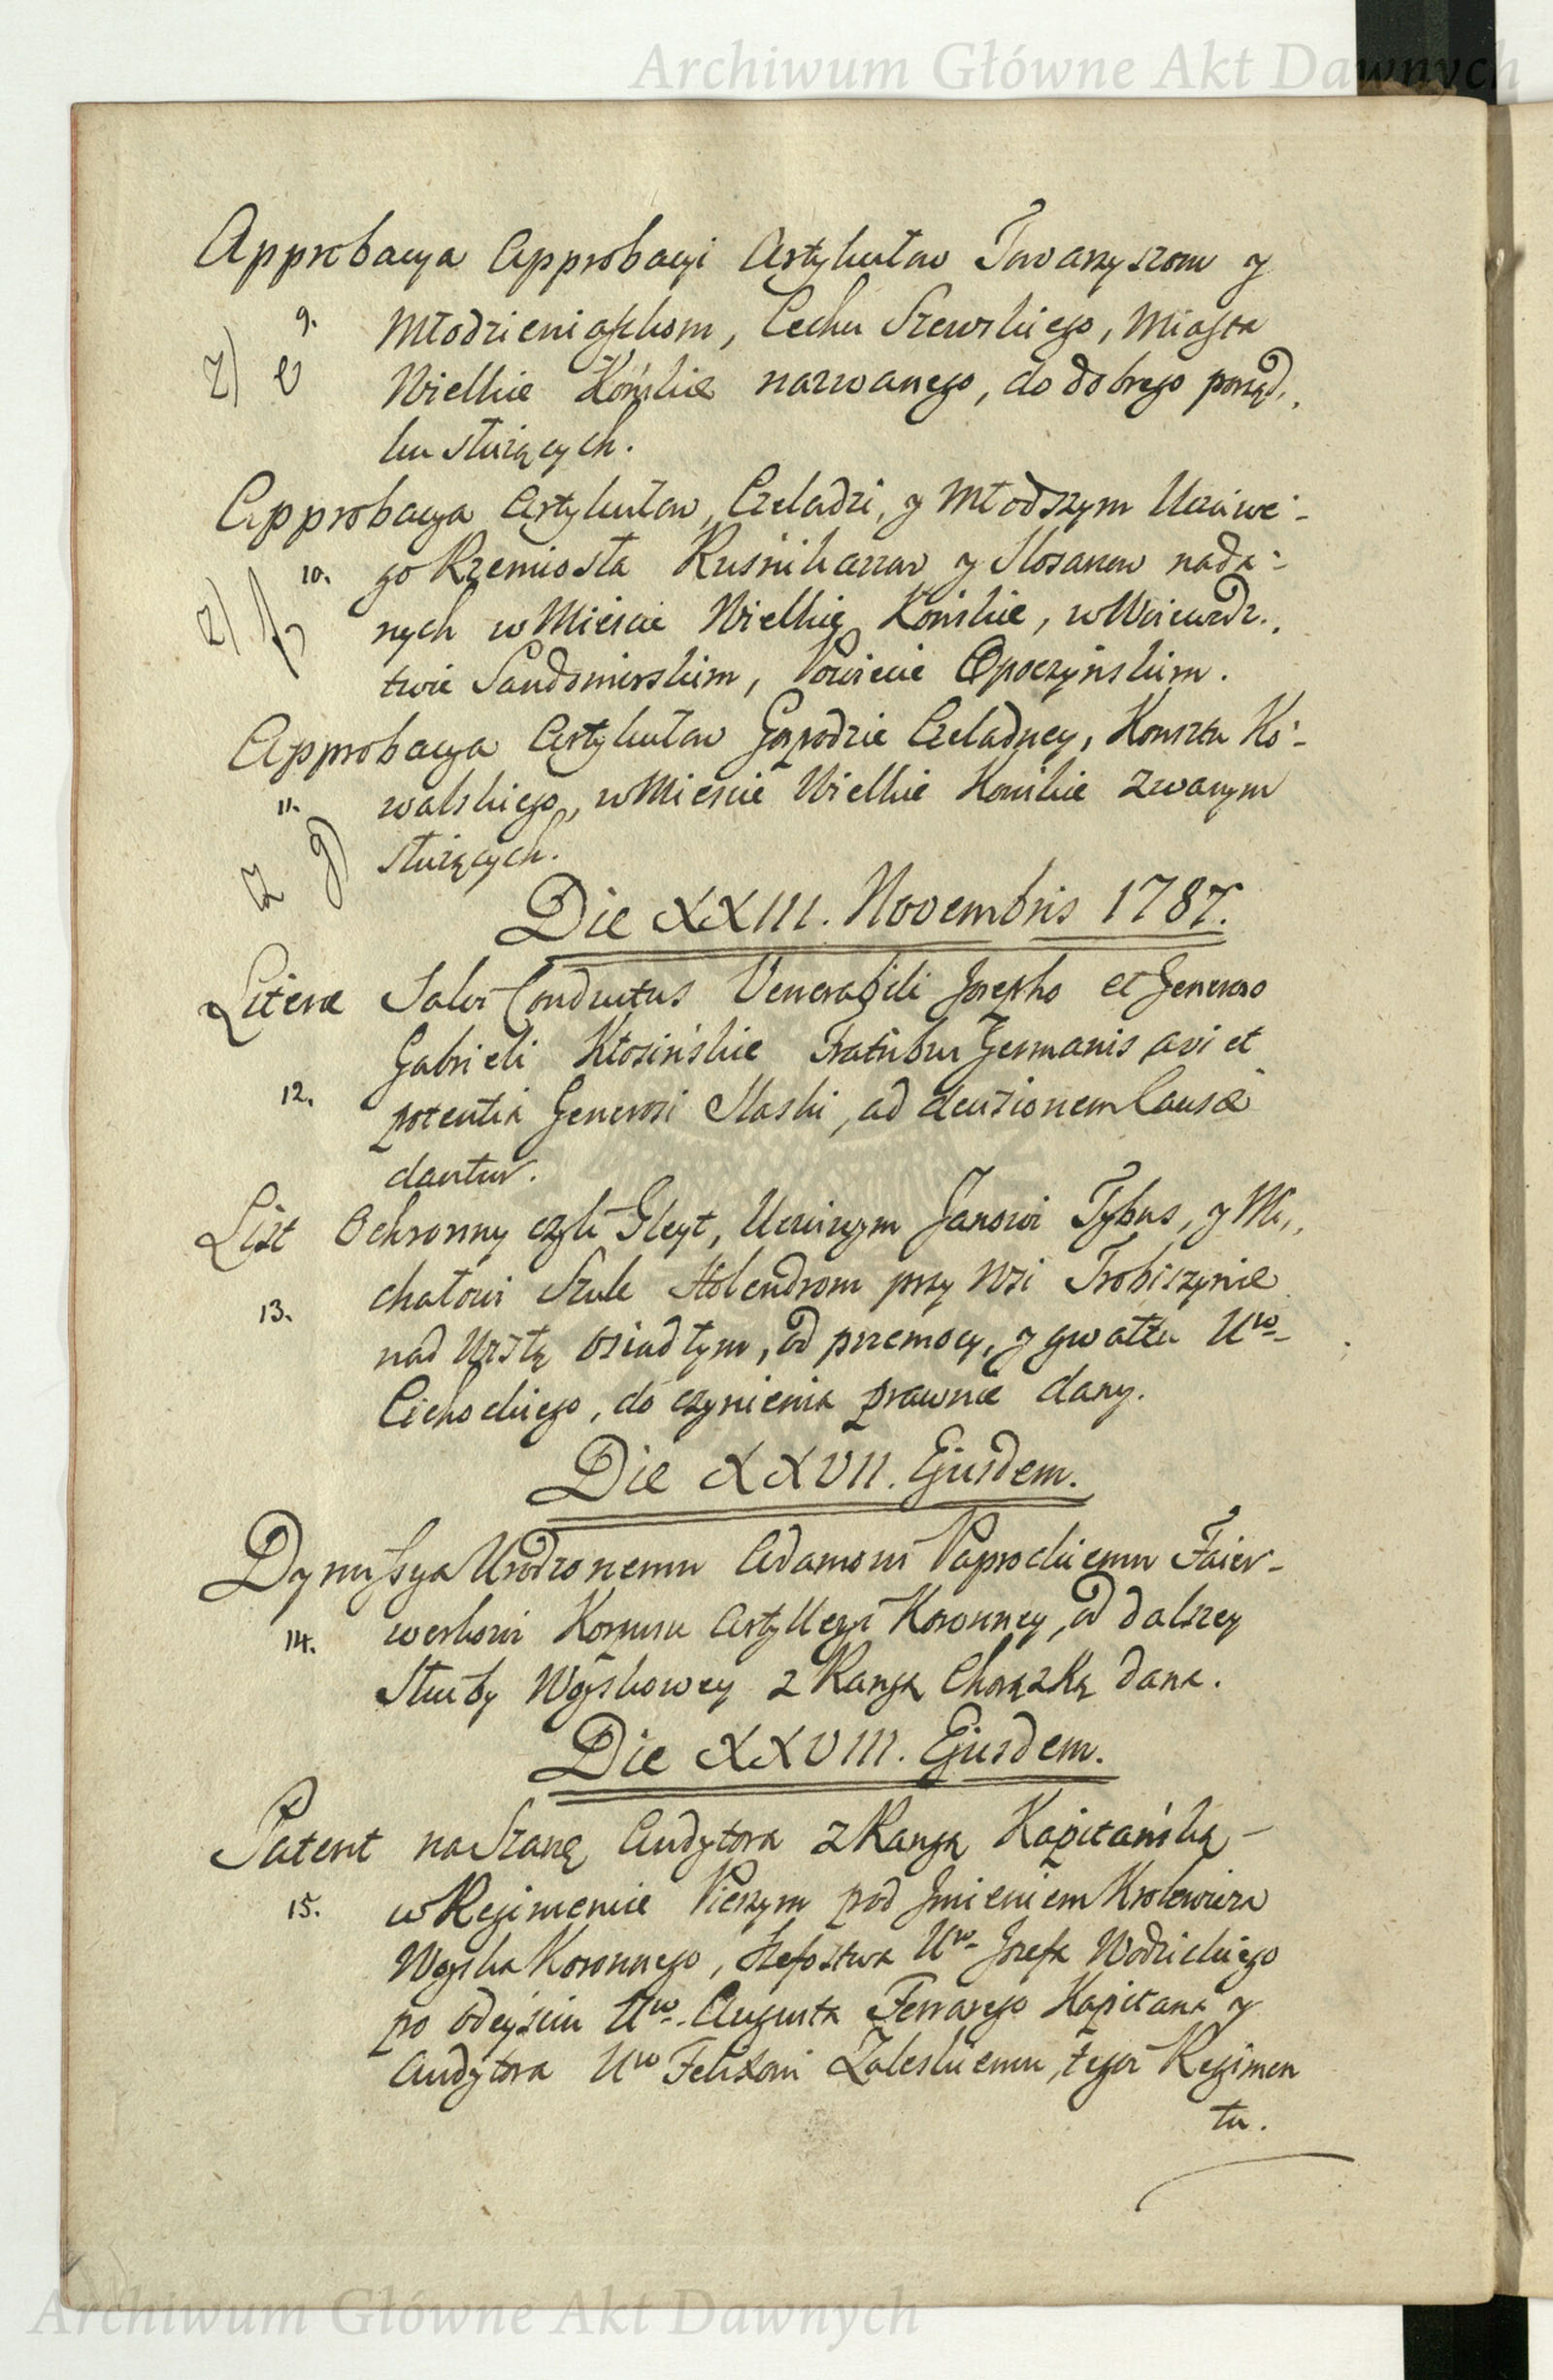 Archiwum Główne Akt Dawnych
Approbacya Approbacyi Artykułow Towarzyszom y
9. Młodzieniaszkom, Cechu Szewskiego, Miasta
2) e Wielkie Końskie nazwanego, do dobrego porząd,,
ku służących.
Approbacya Artykułow, Czeladzi, y Młodszym Uczciwe-
10. go Rzemiosła Kuśnikarzow y Slosarow nada-
2) f nych w Mieście Wielkie Końskie, w Woiewodz,,
twie Sandomirskim, Powiecie Opoczyńskim.
Approbacya Artykułow Gospodzie Czeladney, Kunsztu Ko-
11. walskiego, w Mieście Wielkie Konskie zwanym
2 g) służących.
Die XXIII. Novembris 1787.
Literæ Salvi Conductus Venerabili Josepho et Generoso
Gabrieli Kłosińskie Fratribus Germanis, a vi et
12. potentia Generosi Slaski, ad decisionem Causæ
dantur.
List Ochronny czyli Gleyt, Uczciwym Janowi Tybus, y Mi,,
chałowi Szule Holendrom przy Wsi Trobiszynie
13. nad Wisłą osiadłym, od przemocy, y gwałtu Uro-
Cichockiego, do czynienia prawnie dany.
Die XXVII. Ejusdem.
Dymissya Urodzonemu Adamowi Paprockiemu Faier-
14. werkowi Korpusu Artylleryi Koronney, od dalszey
Służby Woyskowey z Rangą Chorążką dana.
Die XXVIII. Ejusdem.
Patent na Szarżę Audytora z Rangą Kapitańską -
15. w Regimencie Pieszym pod Imieniem Krolewicza
Woyska Koronnego, Szefostwa Uro- Jozefa Wodzickiego
po odeyściu Uro-. Augusta Ferrarego Kapitana y
Audytora Uro Felixowi Zaleskiemu, tegoż Regimen
tu.
Archiwum Główne Akt Dawnych